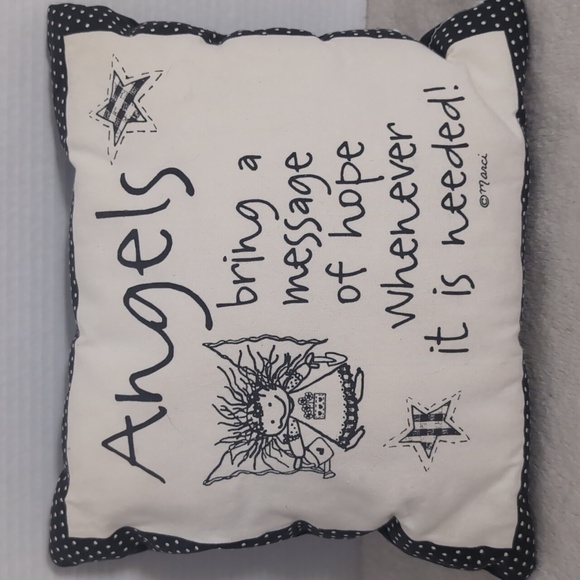 Angels
bring a
message
of hope
Whenever
it is needed!
©Marci